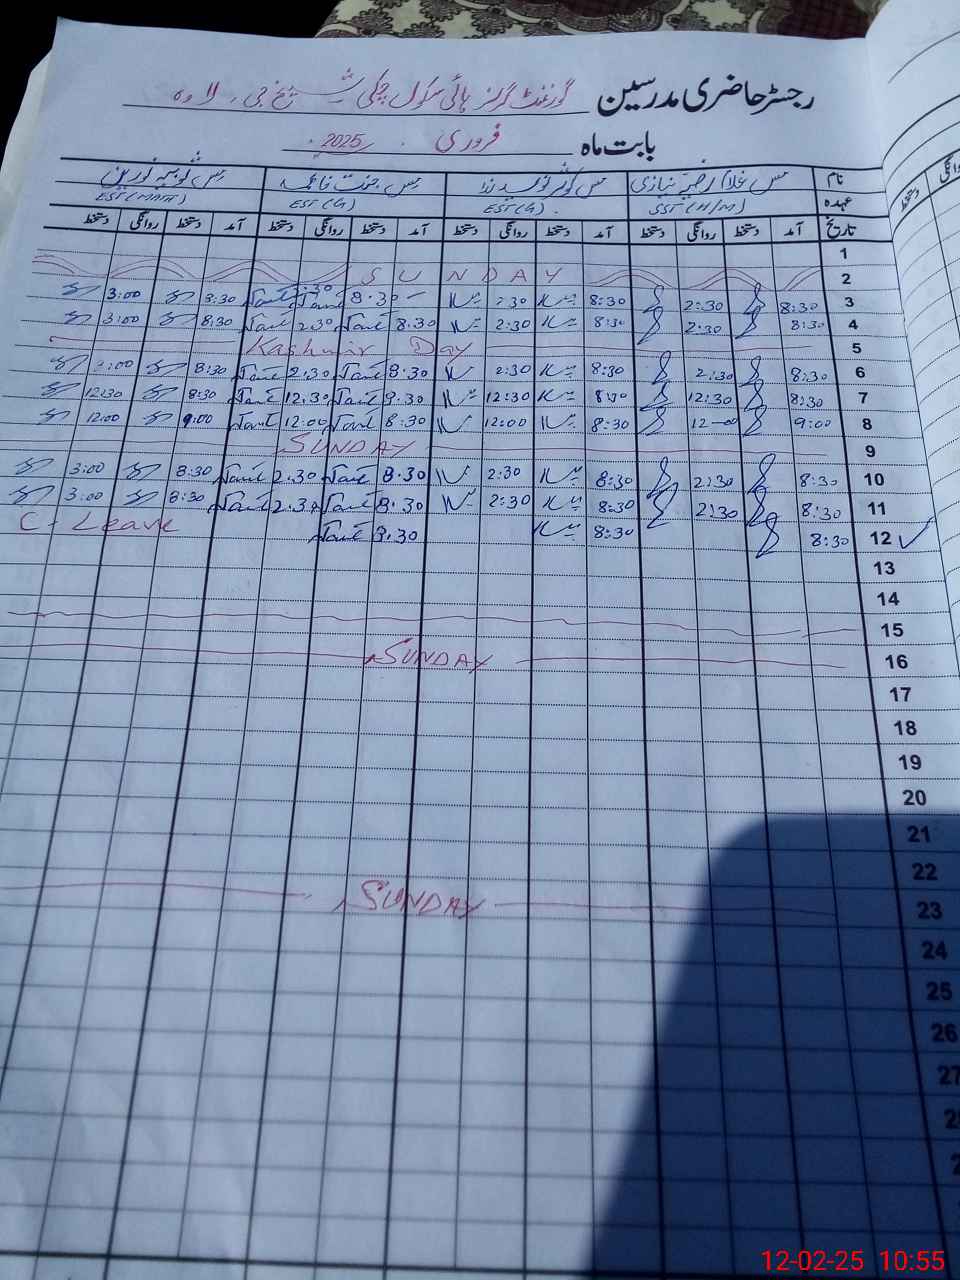 رجسٹر حاضری مدرسین گورنمنٹ گرلز ہائی سکول چکی
بابت ماہ فروری 2025
نام مس غلام رضیہ نیازی مس کوثر مس جنت فاطمہ مس ثوبیہ نورین
عہدہ SST (H/M) EST (G) EST (G) EST (Math)
تاریخ آمد دستخط روانگی دستخط آمد دستخط روانگی دستخط آمد دستخط روانگی دستخط آمد دستخط روانگی دستخط
1
2 SUNDAY
3 8:30 2:30 8:30 2:30 8.30 2.30 8:30 3:00
4 8:30 2:30 8:30 2:30 8.30 2.30 8:30 3:00
5 Kashmir Day
6 8:30 2:30 8:30 2:30 8.30 2.30 8:30
7 8:30 12:30 8:30 12:30 8.30 12.30 8:30 12:30
8 9:00 12-00 8:30 12:00 8.30 12:00 9:00 12:00
9 SUNDAY
10 8:30 2:30 8:30 2:30 8.30 2.30 8:30 3:00
11 8:30 2:30 8:30 2:30 8.30 2.30 8:30 3:00
12 ✓ 8:30 8:30 8.30 C-Leave
13
14
15
16 SUNDAY
17
18
19
20
21
22
23 SUNDAY
24
25
26
27
12-02-25 10:55